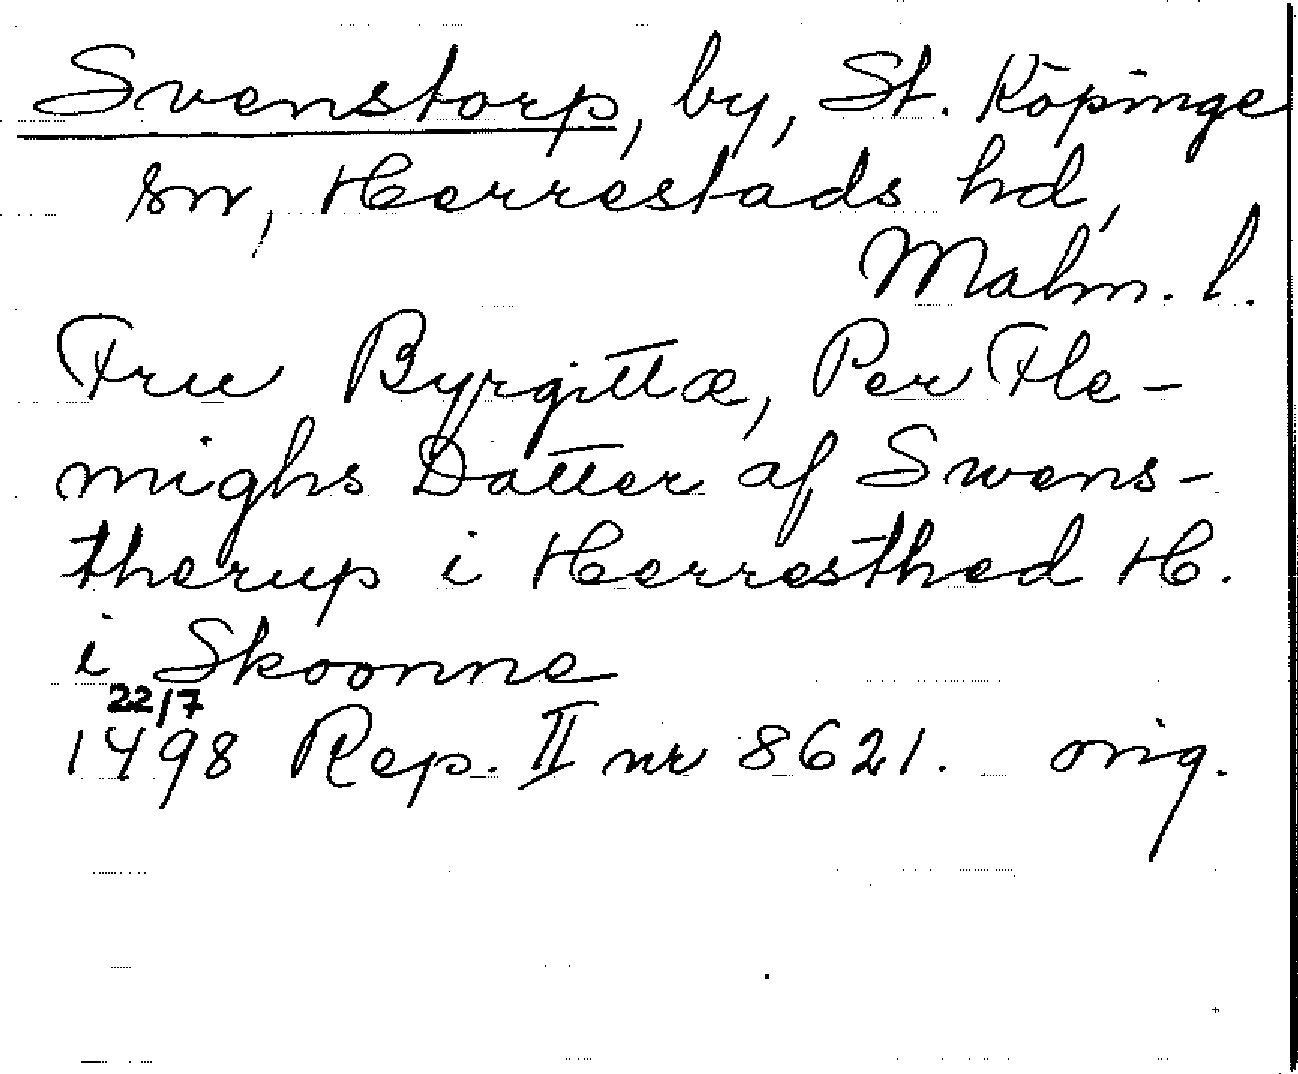 Svenstorp, by, St. Köpinge
sn, Herrestads hd,
Malm. l.
Fru Byrgittæ, Per Fle-
mighs Datter af Swens-
therup i Herresthed H.
i Skoonne
22/7
1498 Rep. II nr 8621. orig.